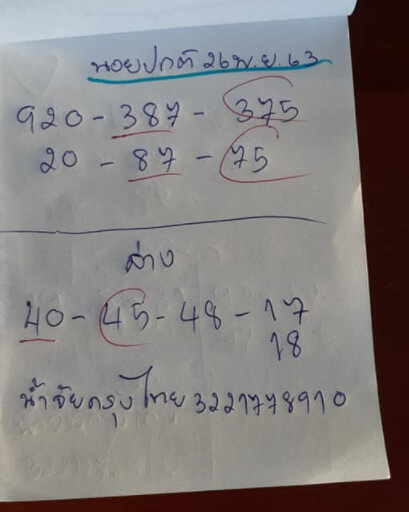 นอยปกติ 26 พ.ย. 63
920 - 387 - 375
20 - 87 - 75
ล่าง
40 - 45 - 48 - 17
18
น้ำใจกรุงไทย 3221778910